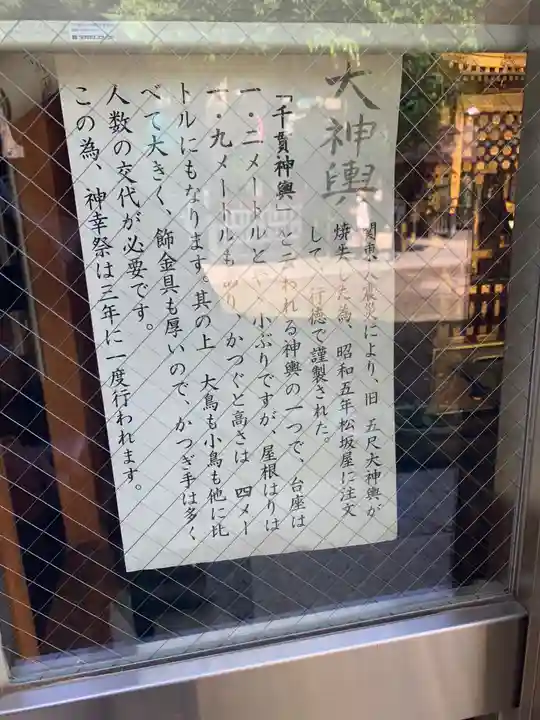 大神輿
関東大震災により、旧 五尺大神輿が
焼失した為、昭和五年松坂屋に注文
して 行徳で謹製された。
「千貫神輿」と云われる神輿の一つで、台座は
一・二メートルと 小ぶりですが、屋根はりは
一・九メートルもあり、かつぐと高さは 四メー
トルにもなります。其の上 大鳥も小鳥も他に比
べて大きく、飾金具も厚いので、かつぎ手は多く
人数の交代が必要です。
この為、神幸祭は三年に一度行われます。